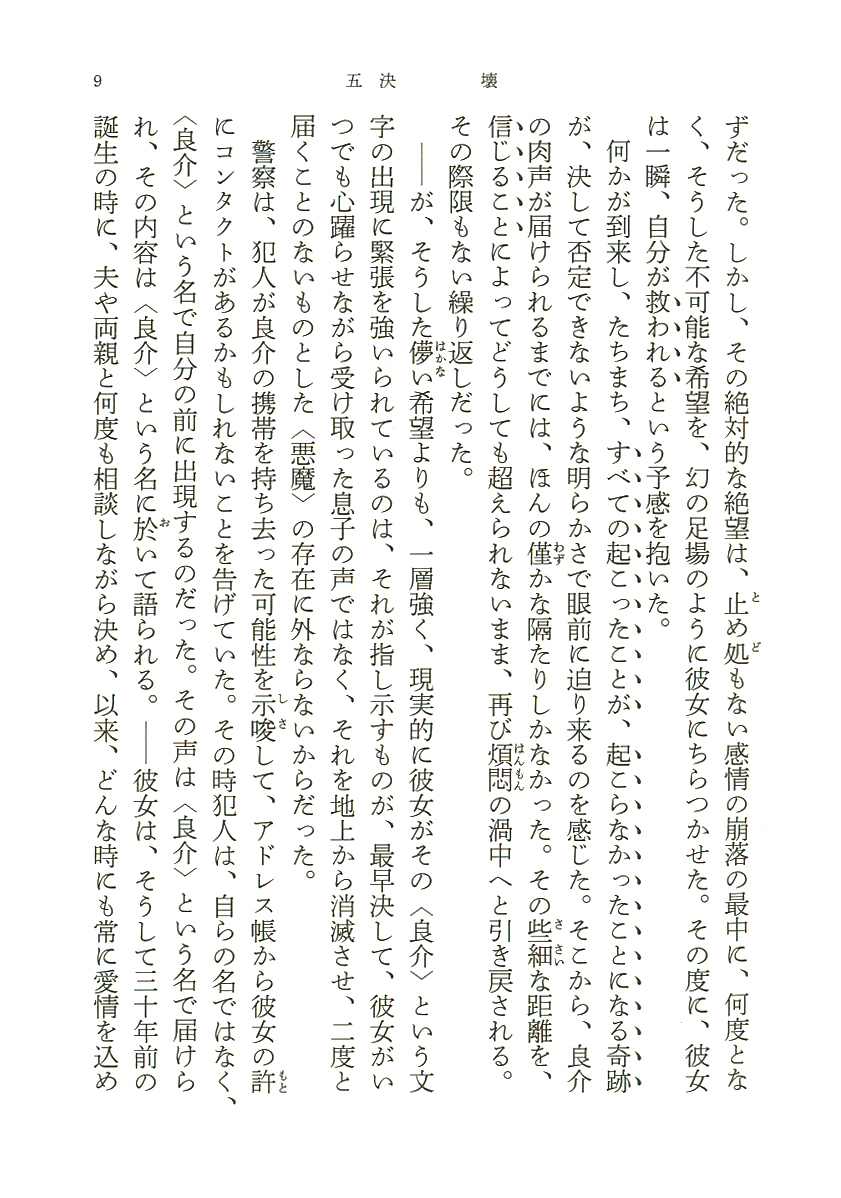 9
五 決 壊
ずだった。しかし、その絶対的な絶望は、止め処もない感情の崩落の最中に、何度とな
く、そうした不可能な希望を、幻の足場のように彼女にちらつかせた。その度に、彼女
は一瞬、自分が救われるという予感を抱いた。
何かが到来し、たちまち、すべての起こったことが、起こらなかったことになる奇跡
が、決して否定できないような明らかさで眼前に迫り来るのを感じた。そこから、良介
の肉声が届けられるまでには、ほんの僅かな隔たりしかなかった。その些細な距離を、
信じることによってどうしても超えられないまま、再び煩悶の渦中へと引き戻される。
その際限もない繰り返しだった。
――が、そうした儚い希望よりも、一層強く、現実的に彼女がその〈良介〉という文
字の出現に緊張を強いられているのは、それが指し示すものが、最早決して、彼女がい
つでも心躍らせながら受け取った息子の声ではなく、それを地上から消滅させ、二度と
届くことのないものとした〈悪魔〉の存在に外ならないからだった。
警察は、犯人が良介の携帯を持ち去った可能性を示唆して、アドレス帳から彼女の許
にコンタクトがあるかもしれないことを告げていた。その時犯人は、自らの名ではなく、
〈良介〉という名で自分の前に出現するのだった。その声は〈良介〉という名で届けら
れ、その内容は〈良介〉という名に於いて語られる。――彼女は、そうして三十年前の
誕生の時に、夫や両親と何度も相談しながら決め、以来、どんな時にも常に愛情を込め